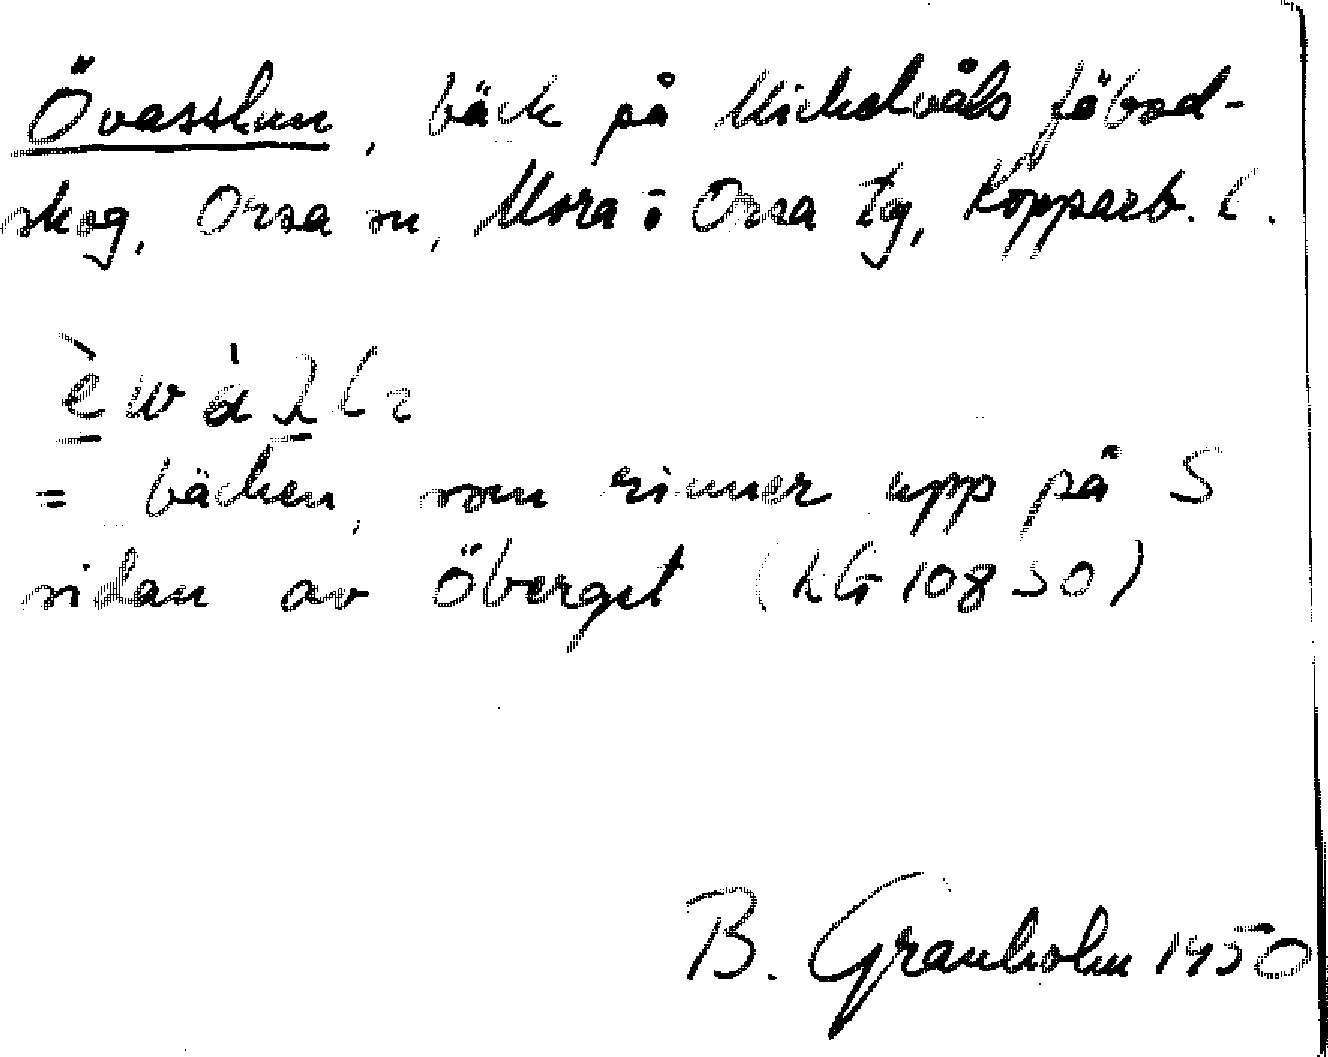 Övasslun, bäck på Mickelvåls fäbod-
skog, Orsa sn, Mora o Orsa tg, Kopparb. l.
= bäcken, som rinner upp på S
sidan av Öberget (KG 10850)
B. Granholm 1950